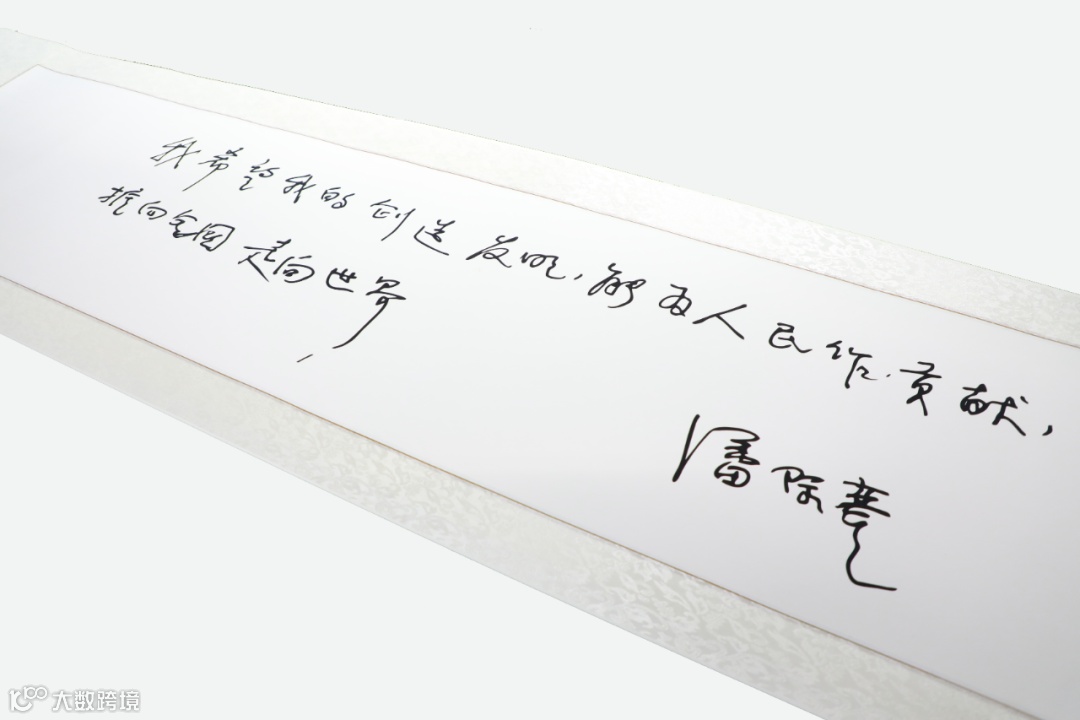 我希望我的创造发明，能为人民作贡献，
推向全国 走向世界
潘际銮
大数跨境